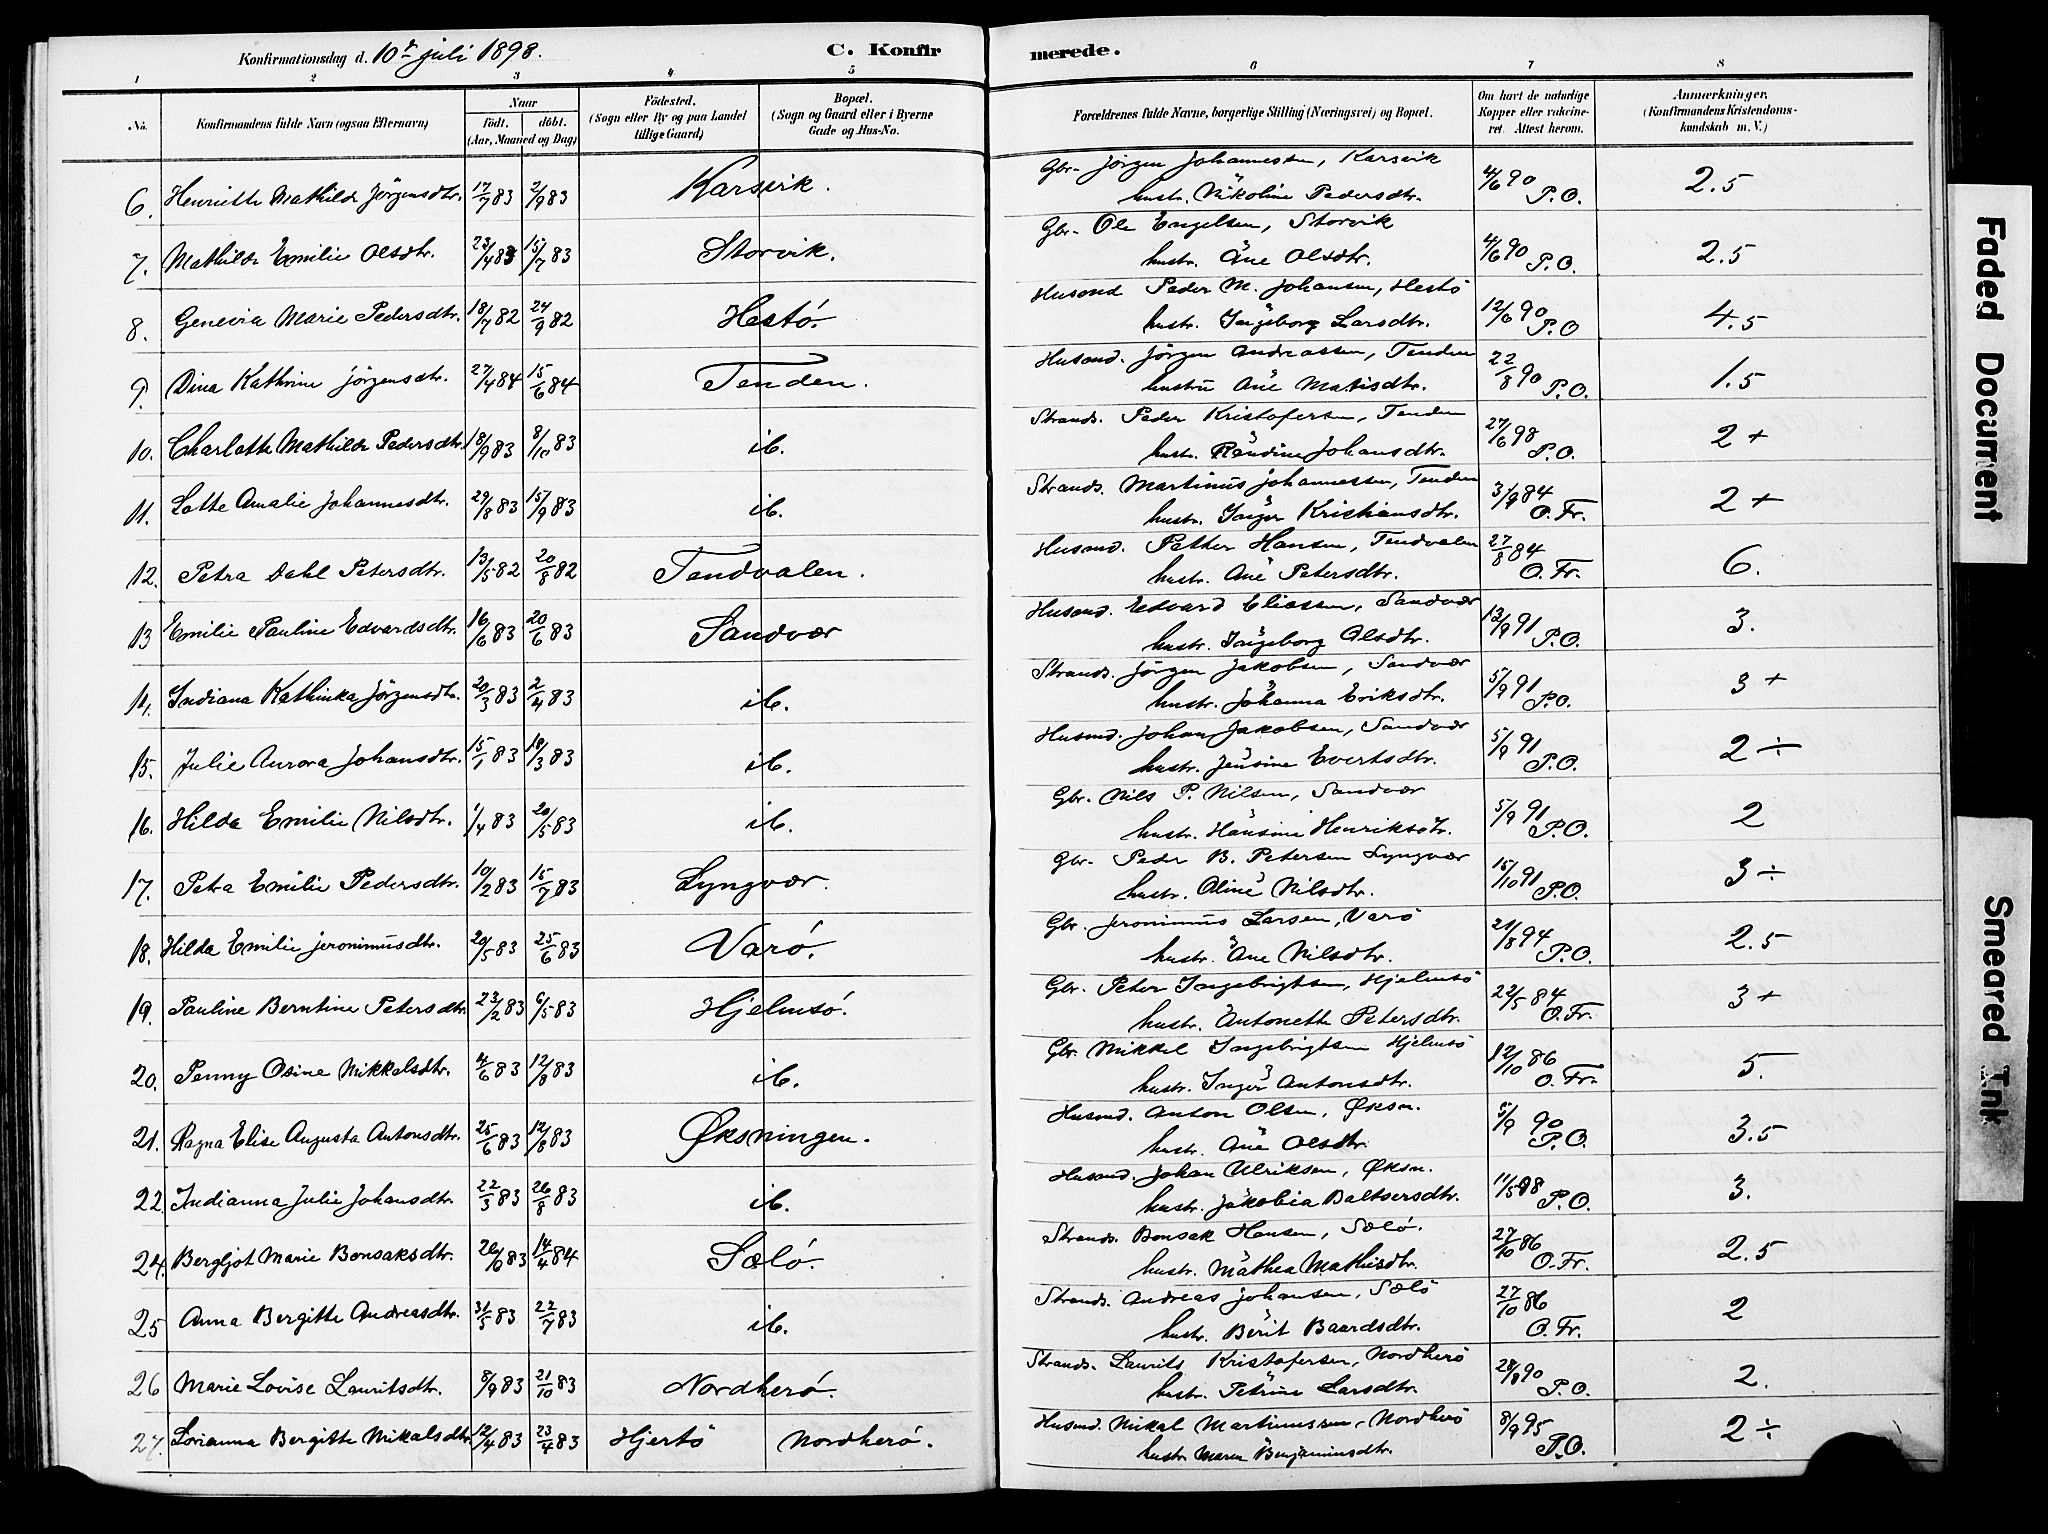 Konfirmationsdag d. 10de juli 1898. C. Konfir merede.
1 2 3 4 5 6 7 8
No. Konfirmandens fulde Navn (ogsaa Efternavn) Naar født. døbt. (Aar, Maaned og Dag) Fødested. (Sogn eller By og paa Landet tillige Gaard) Bopæl. (Sogn og Gaard eller i Byerne Gade og Hus-No. Forældrenes fulde Navne, borgerlige Stilling (Næringsvei) og Bopæl. Om havt de naturlige Kopper eller vakcineret. Attest herom. Anmærkninger. (Konfirmandens Kristendomskundskab m. V.)
6. Henriette Mathilde Jörgensdtr. 17/7 83 2/9 83 Karsvik. Gbr. Jörgen Johannessen, Karsvik 4/6 90 P.O. 2.5
hustr. Nikoline Pedersdtr.
7. Mathilde Emilie Olsdtr. 23/4 83 15/7 83 Storvik. Gbr. Ole Engelsen, Storvik 4/6 90 P.O. 2.5
hustr. Ane Olsdtr.
8. Genevia Marie Pedersdtr. 18/7 82 24/9 82 Hestö. Husmd Peder M. Johansen, Hestö 12/6 90 P.O 4.5
hustr. Ingeborg Larsdtr.
9. Dina Kathrine Jörgensdtr. 27/4 84 15/6 84 Tenden. Husmd. Jörgen Andreassen, Tenden 22/8 90 P.O. 1.5
hustru Ane Matisdtr.
10. Charlotte Mathilde Pedersdtr. 18/9 83 8/10 83 ib. Strands. Peder Kristofersen, Tenden 27/6 98 P.O. 2 +
hustr. Randine Johansdtr.
11. Lotte Amalie Johannesdtr. 29/8 83 15/9 83 ib. Strands. Martinus Johannessen, Tenden 3/9 84 O. Fr. 2 +
hustr. Inger Kristiansdtr.
12. Petra Dahl Petersdtr. 13/5 82 20/8 82 Tendvalen. Husmd. Petter Hansen, Tendvalen 27/8 84 O. Fr. 6.
hustr. Ane Petersdtr.
13 Emilie Pauline Edvardsdtr. 16/6 83 20/6 83 Sandvær Husmd. Edvard Eliassen, Sandvær 12/9 91 P.O. 3.
hustr. Ingeborg Olsdtr.
14. Indiana Kathinka Jörgensdtr. 20/3 83 2/4 83 ib. Strands. Jörgen Jakobsen, Sandvær 5/9 91 P.O. 3 +
hustr. Johanna Eriksdtr.
15. Julie Aurora Johansdtr. 15/1 83 18/3 83 ib. Husmd. Johan Jakobsen, Sandvær 5/9 91 P.O. 2 ÷
hustr. Jensine Evertsdtr.
16. Hilda Emilie Nilsdtr. 1/4 83 20/5 83 ib. Gbr. Nils P. Nilsen, Sandvær 5/9 91 P.O. 2
hustr. Hansine Henriksdtr.
17. Petra Emilie Pedersdtr. 10/2 83 15/7 83 Lyngvær. Gbr. Peder B. Petersen Lyngvær 15/10 91 P.O. 3 ÷
hustr. Oline Nilsdtr.
18. Hilda Emilie Jeronimusdtr. 20/5 83 25/6 83 Varö. Gbr. Jeronimus Larsen, Varö 21/8 94 P.O. 2.5
hustr. Ane Nilsdtr.
19. Pauline Berntine Petersdtr. 23/2 83 6/5 83 Hjelmsö. Gbr. Peter Ingebrigtsen, Hjelmsö 22/5 84 O.Fr. 3 +
hustr. Antonette Petersdtr.
20. Penny Osine Mikkelsdtr. 4/6 83 12/8 83 ib. Gbr. Mikkel Ingebrigtsen Hjelmsö 12/10 86 O. Fr. 5.
hustr. Inger Antonsdtr.
21. Ragna Elise Augusta Antonsdtr. 25/6 83 12/8 83 Øksningen. Husmd. Anton Olsen, Øksn. 5/9 90 P.O. 3.5
hustr. Ane Olsdtr.
22. Indianna Julie Johansdtr. 22/3 83 26/8 83 ib. Husmd. Johan Ulriksen, Øksn. 11/5 98 P.O. 3.
hustr. Jakobia Baltsersdtr.
24. Bergljot Marie Bonsaksdtr. 26/6 83 14/4 84 Sælö. Strands. Bonsak Hansen, Sælö. 27/10 86 O. Fr. 2.5
hustr. Mathea Mathisdtr.
25 Anna Bergitte Andreasdtr. 31/5 83 22/7 83 ib. Strands. Andreas Johansen, Sælö 27/10 86 O. Fr. 2
hustr. Berit Baardsdtr.
26 Marie Lovise Lauritsdtr. 8/9 83 21/10 83 Nordherö. Strands. Laurits Kristofersen, Nordherö 28/8 90 P.O. 2.
hustr. Petrine Larsdtr.
27. Lorianna Bergitte Mikalsdtr. 12/4 83 23/4 83 Hjertö Nordherö. Husmd. Mikal Martinussen, Nordherö 8/9 95 P.O. 2 ÷
hustr. Maren Benjaminsdtr.
Faded Document
Smeared Ink